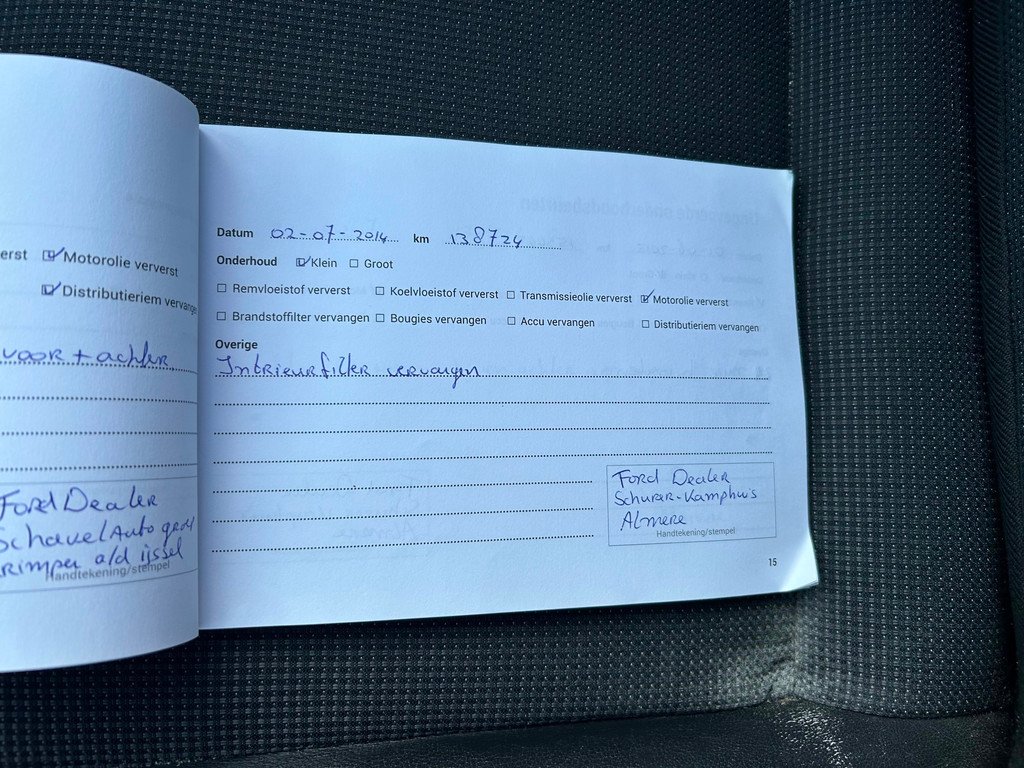 erst ☑ Motorolie ververst
☑ Distributieriem vervange
voor + achter
Ford Dealer
Schavel Auto
krimpen a/d ijssel
Handtekening/stempel
Datum 02-07-2014 km 138724
Onderhoud ☑ Klein ☐ Groot
☐ Remvloeistof ververst ☐ Koelvloeistof ververst ☐ Transmissieolie ververst ☑ Motorolie ververst
☐ Brandstoffilter vervangen ☐ Bougies vervangen ☐ Accu vervangen ☐ Distributieriem vervangen
Overige
Intrieurfilter vervangen
Ford Dealer
Schurer-Kamphuis
Almere
Handtekening/stempel
15